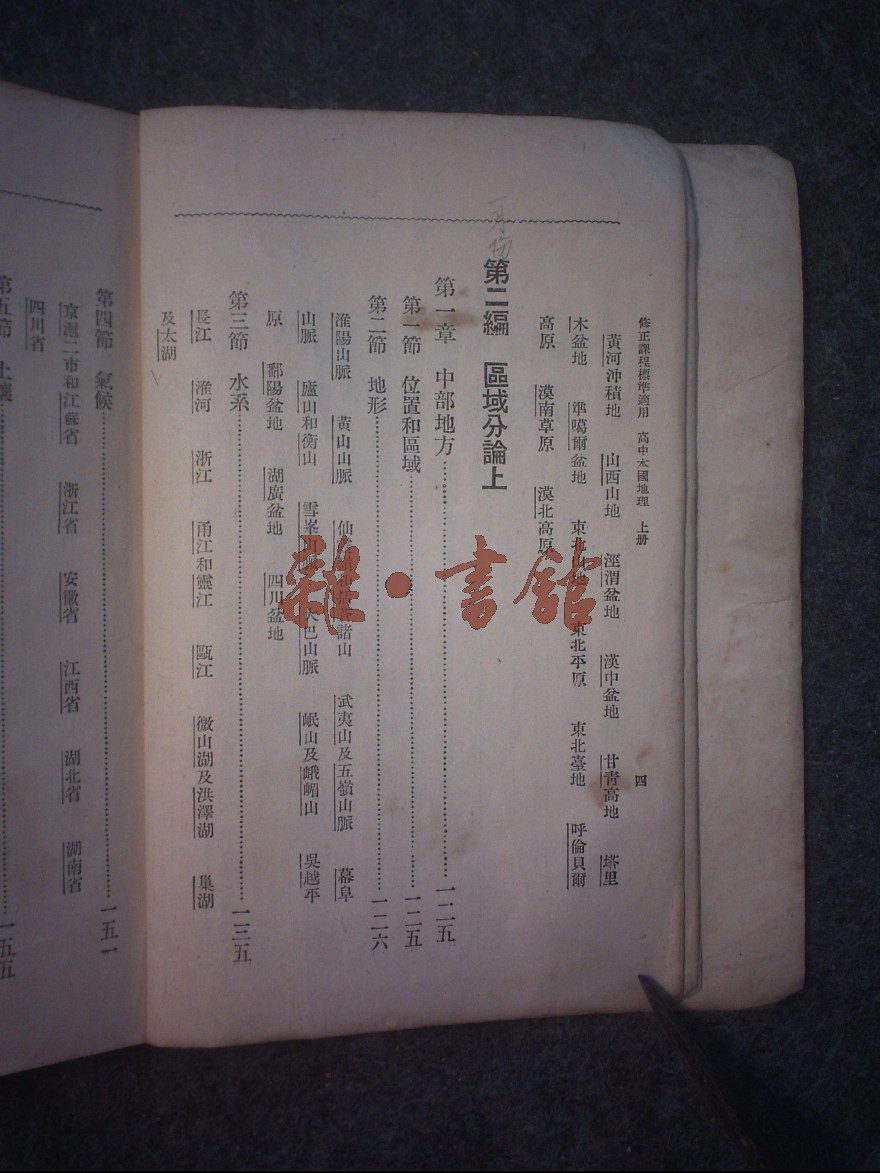 修正課程標準適用 高中本國地理 上册 四
黃河沖積地 山西山地 涇渭盆地 漢中盆地 甘青高地 塔里
木盆地 準噶爾盆地 東北山地 東北平原 東北臺地 呼倫貝爾
高原 漠南草原 漠北高原
第二編 區域分論上
第一章 中部地方 一二五
第一節 位置和區域 一二五
第二節 地形 一二六
淮陽山脈 黃山山脈 仙 諸山 武夷山及五嶺山脈 幕阜
山脈 廬山和衡山 雪峯山脈 大巴山脈 岷山及峨嵋山 吳越平
原 鄱陽盆地 湖廣盆地 四川盆地
第三節 水系 一三五
長江 淮河 浙江 甬江和靈江 甌江 微山湖及洪澤湖 巢湖
及太湖
第四節 氣候 一五一
京滬二市和江蘇省 浙江省 安徽省 江西省 湖北省 湖南省
四川省
第五節 土壤 一五五
雜·書館